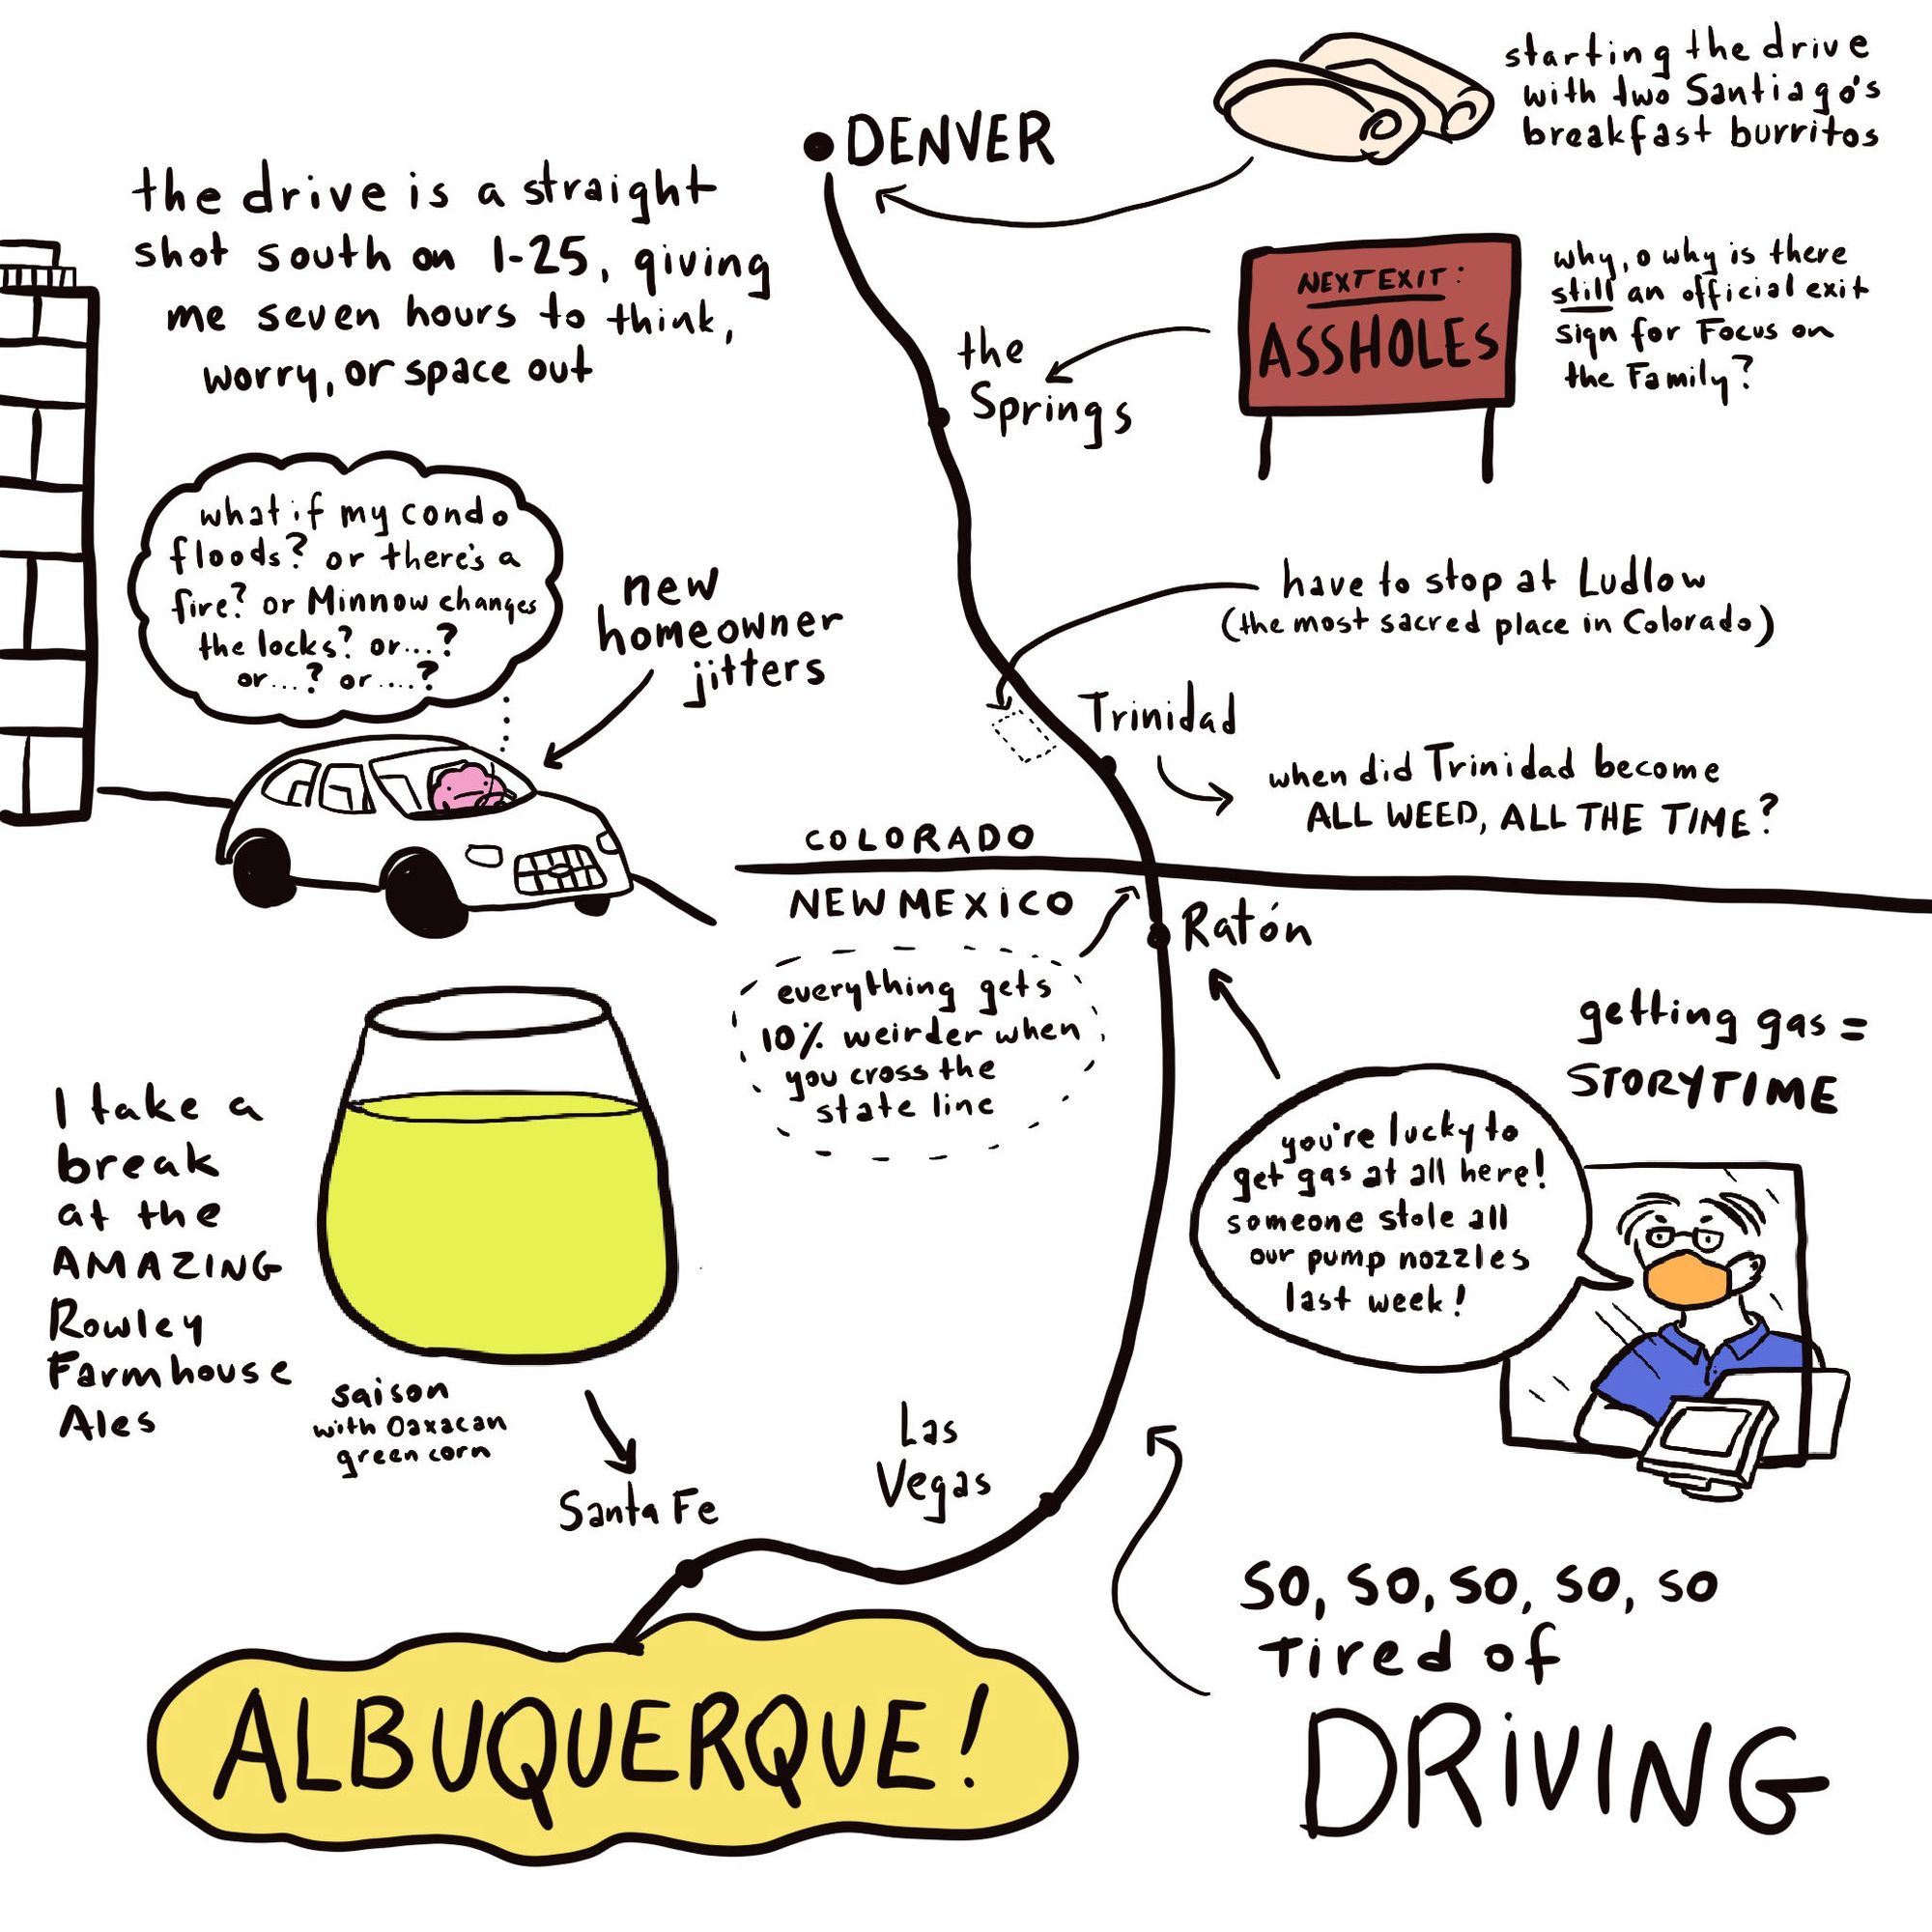 starting the drive
with two Santiago's
breakfast burritos
DENVER
the drive is a straight
shot south on I-25, giving
me seven hours to think,
worry, or space out
NEXT EXIT:
ASSHOLES
why, o why is there
still an official exit
sign for Focus on
the Family?
the
Springs
what if my condo
floods? or there's a
fire? or Minnow changes
the locks? or...?
or...? or....?
new
homeowner
jitters
have to stop at Ludlow
(the most sacred place in Colorado)
Trinidad
when did Trinidad become
ALL WEED, ALL THE TIME?
COLORADO
NEW MEXICO
Ratón
everything gets
10% weirder when
you cross the
state line
getting gas =
STORYTIME
you're lucky to
get gas at all here!
someone stole all
our pump nozzles
last week!
I take a
break
at the
AMAZING
Rowley
Farmhouse
Ales
saison
with Oaxacan
green corn
Santa Fe
Las
Vegas
so, so, so, so, so
tired of
DRIVING
ALBUQUERQUE!